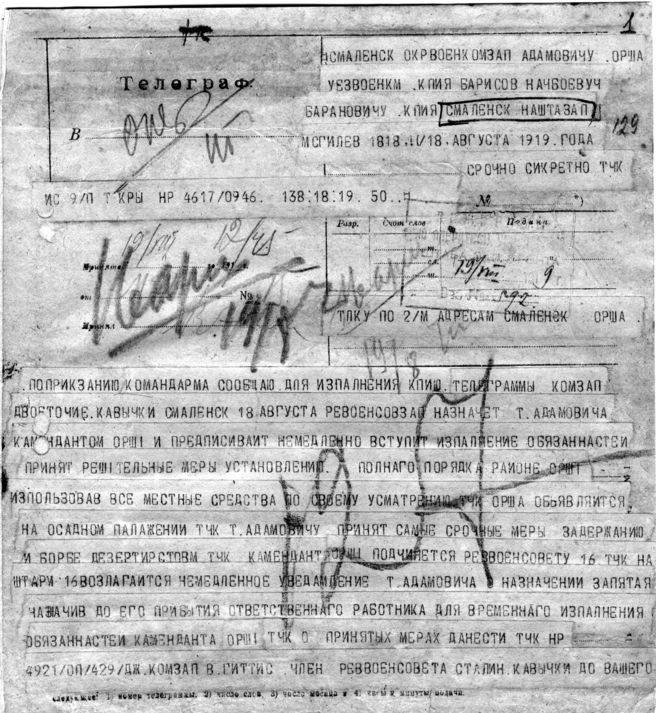 1
СМАЛЕНСК ОКРВОЕНКОМЗАП АДАМОВИЧУ .ОРША
Телеграф.
УЕЗВОЕНКМ .КПИЯ БАРИСОВ НАЧБОЕВУЧ
БАРАНОВИЧУ .КПИЯ СМАЛЕНСК НАШТАЗАП
129
В
МСГИЛЕВ 1818 .Н/18 .АВГУСТА 1919. ГОДА
СРОЧНО СИКРЕТНО ТЧК
ИС 9/П Т КРЫ НР 4617/0946. 138:18:19. 50..
№
19/VIII 12/45
Разр. Счет слов Подача.
Принята
19/VIII 9
от №
892
Принял
19/8
ТЛКУ ПО 2/М АДРЕСАМ СМАЛЕНСК ОРША .
19/8
.ПОПРИКЗАНИЮ КОМАНДАРМА СООБЩАЮ ДЛЯ ИЗПАЛНЕНИЯ КПИЮ. ТЕЛЕГРАММЫ КОМЗАП
ДВОЕТОЧИЕ.КАВЫЧКИ СМАЛЕНСК 18 АВГУСТА РЕВОЕНСОВЗАП НАЗНАЧЕТ Т.АДАМОВИЧА
КАМЕНДАНТОМ ОРШI И ПРЕДПИСИВАИТ НЕМЕДЛЕННО ВСТУПИТ ИЗПАЛНЕНИЕ ОБЯЗАННАСТЕЙ
ПРИНЯТ РЕШIТЕЛЬНЫЕ МЕРЫ УСТАНОВЛЕНИЮ. ПОЛНАГО ПОРЯДКА РАЙОНЕ ОРШI
ИЗПОЛЬЗОВАВ ВСЕ МЕСТНЫЕ СРЕДСТВА ПО СВОЕМУ УСМАТРЕНИЮ ТЧК ОРША ОБЬЯВЛЯИТСЯ
НА ОСАДНОМ ПАЛАЖЕНИИ ТЧК Т.АДАМОВИЧУ ПРИНЯТ САМЫЕ СРОЧНЫЕ МЕРЫ ЗАДЕРЖАНИЮ
И БОРБЕ ДЕЗЕРТИРСТОВМ ТЧК КАМЕНДАНТ ОРШЫ ПОДЧИНЯЕТСЯ РЕВВОЕНСОВЕТУ 16 ТЧК НА
ШТАРМ 16ВОЗЛАГАИТСЯ НЕМЕДЛЕННОЕ УВЕДАМЛЕНИЕ Т.АДАМОВИЧА О НАЗНАЧЕНИИ ЗАПЯТАЯ
НАЗНАЧИВ ДО ЕГО ПРИБЫТИЯ ОТВЕТСТВЕННАГО РАБОТНИКА ДЛЯ ВРЕМЕННАГО ИЗПАЛНЕНИЯ
ОБЯЗАННАСТЕЙ КАМЕНДАНТА ОРШI ТЧК О ПРИНЯТЫХ МЕРАХ ДАНЕСТИ ТЧК НР
4921/ОП/429/ДЖ.КОМЗАП В.ГИТТИС .ЧЛЕН РЕВВОЕНСОВЕТА СТАЛИН.КАВЫЧКИ ДО ВАШЕГО
следующее: 1) номер телеграммы, 2) число слов, 3) число месяца и 4) часы и минуты подачи.